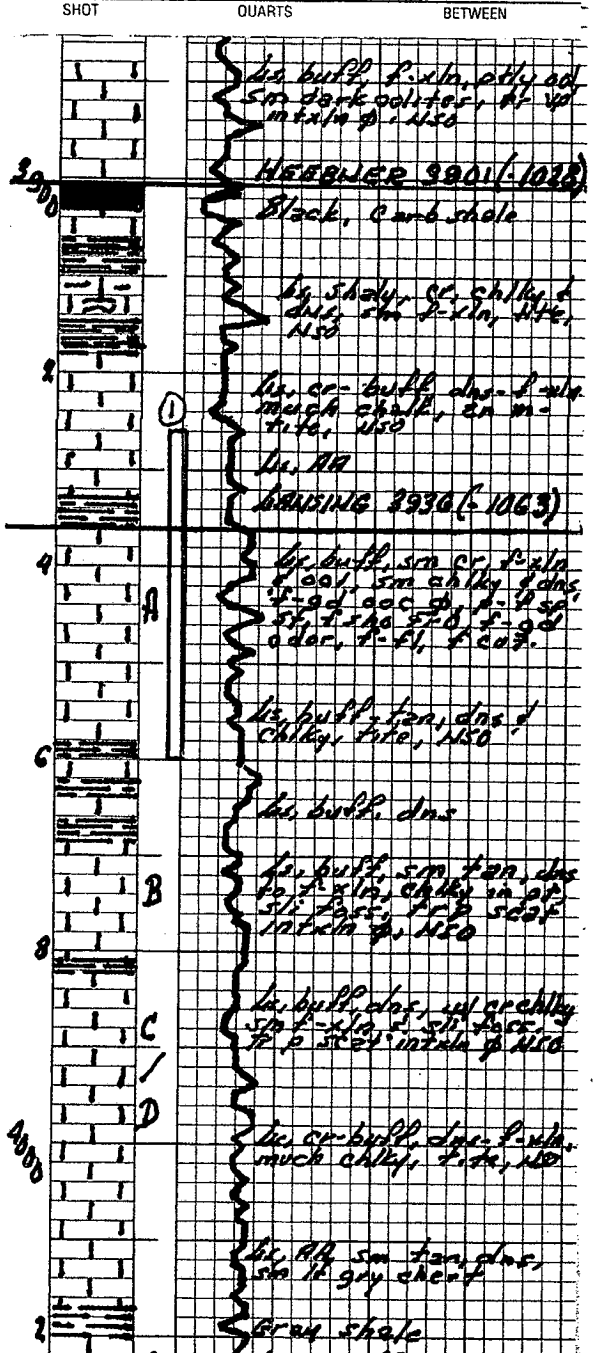 SHOT QUARTS BETWEEN
Ls, buff, f-xln, ptly ool,
sm dark oolites, tr vp
intxln ϕ. NSO
3900
HEEBNER 3901 (-1028)
Black, Carb shale
Ls, shaly, cr, chlky &
dns, sm f-xln, tite,
NSO
2
Ls, cr-buff dns-f-xln
much chalk,
tite, NSO
1
Ls, AA
LANSING 3936 (-1063)
4
Ls, buff, sm cr, f-xln
& ool, sm chlky & dns,
f-gd ooc ϕ, p-f sp
sf, f sho fro, f-gd
odor, f-fl, f cut.
A
Ls, buff-tan, dns &
chlky, tite, NSO
6
Ls, buff, dns
Ls, buff, sm tan, dns
to f-xln, chlky in pt,
sli foss, tr p scat
intxln ϕ, NSO
B
8
Ls, buff dns, w/ cr chlky
sm f-xln, & sli foss.
tr p scat intxln ϕ NSO
C
/
D
4000
Ls, cr-buff, dns-f-xln,
much chlky, tite, NSO
Ls, AA sm tan, dns,
sm lt gry chert
2
Gray shale